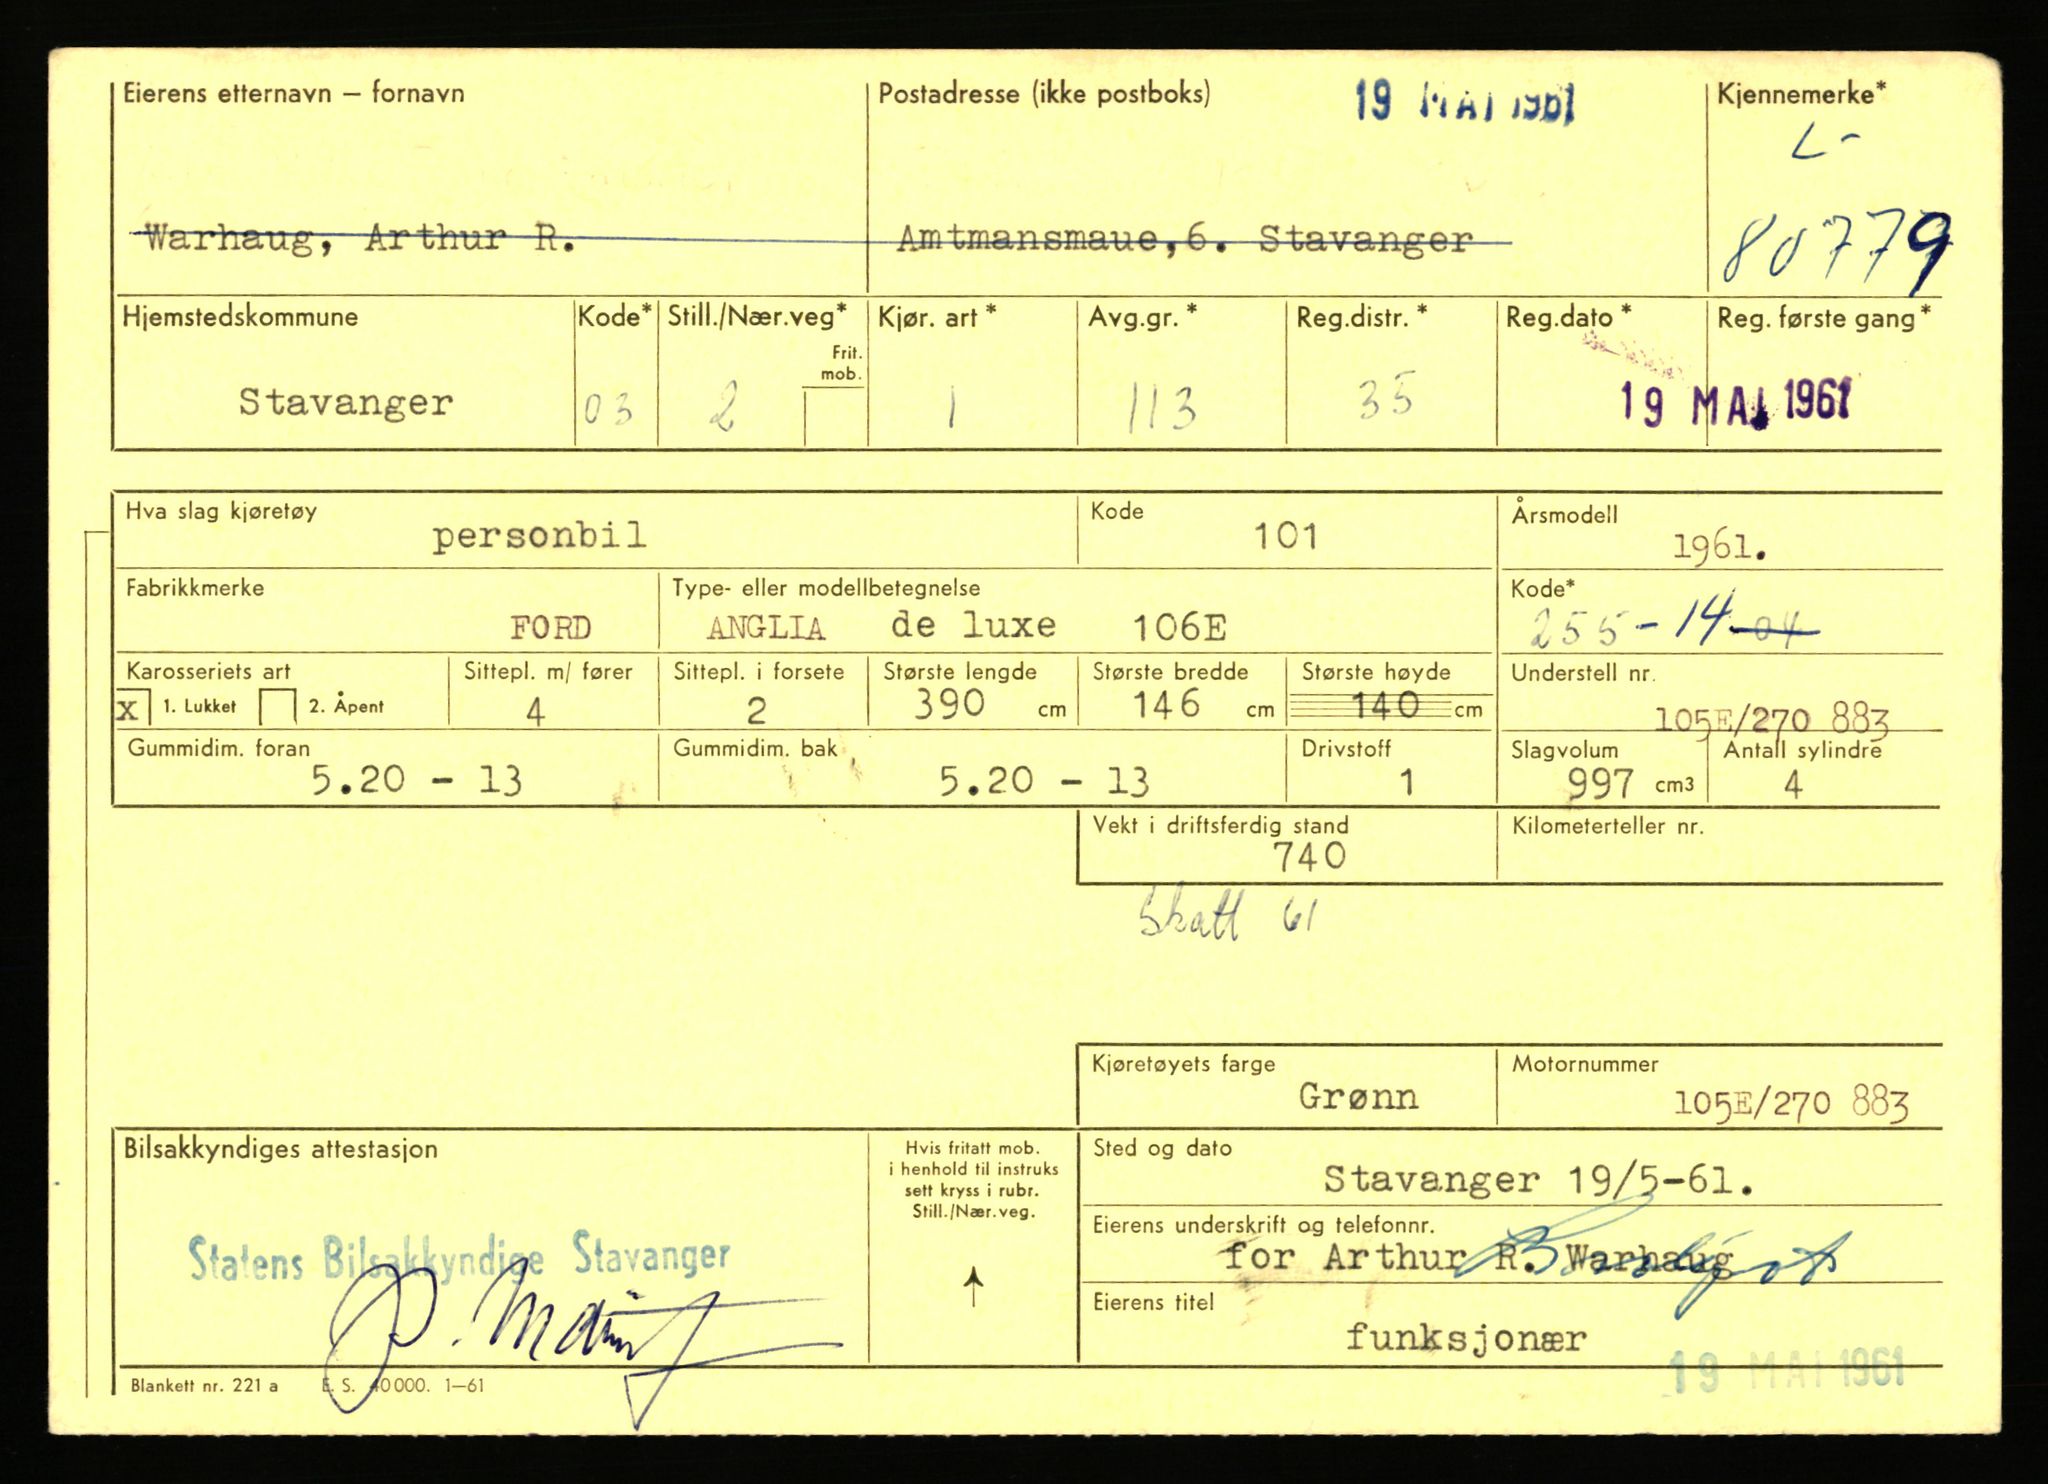 Eierens etternavn – fornavn
Postadresse (ikke postboks)
19 MAI 1961
Kjennemerke*
L-
Warhaug, Arthur R.
Amtmansmaue,6. Stavanger
80779
Hjemstedskommune
Kode*
Still./Nær.veg*
Kjør. art*
Avg.gr.*
Reg.distr.*
Reg.dato*
Reg. første gang*
Frit.
mob.
Stavanger
03
2
1
113
35
19 MAI 1961
Hva slag kjøretøy
personbil
Kode
101
Årsmodell
1961.
Fabrikkmerke
FORD
Type- eller modellbetegnelse
ANGLIA de luxe 106E
Kode*
255-14-04
Karosseriets art
x 1. Lukket 2. Åpent
Sittepl. m/ fører
4
Sittepl. i forsete
2
Største lengde
390 cm
Største bredde
146 cm
Største høyde
140 cm
Understell nr.
105E/270 883
Gummidim. foran
5.20 - 13
Gummidim. bak
5.20 - 13
Drivstoff
1
Slagvolum
997 cm3
Antall sylindre
4
Vekt i driftsferdig stand
740
Kilometerteller nr.
Skatt 61
Kjøretøyets farge
Grønn
Motornummer
105E/270 883
Bilsakkyndiges attestasjon
Statens Bilsakkyndige Stavanger
Hvis fritatt mob.
i henhold til instruks
sett kryss i rubr.
Still./Nær.veg.
Sted og dato
Stavanger 19/5-61.
Eierens underskrift og telefonnr.
for Arthur R. Warhaug
Eierens titel
funksjonær
19 MAI 1961
Blankett nr. 221 a E. S. 40 000. 1–61